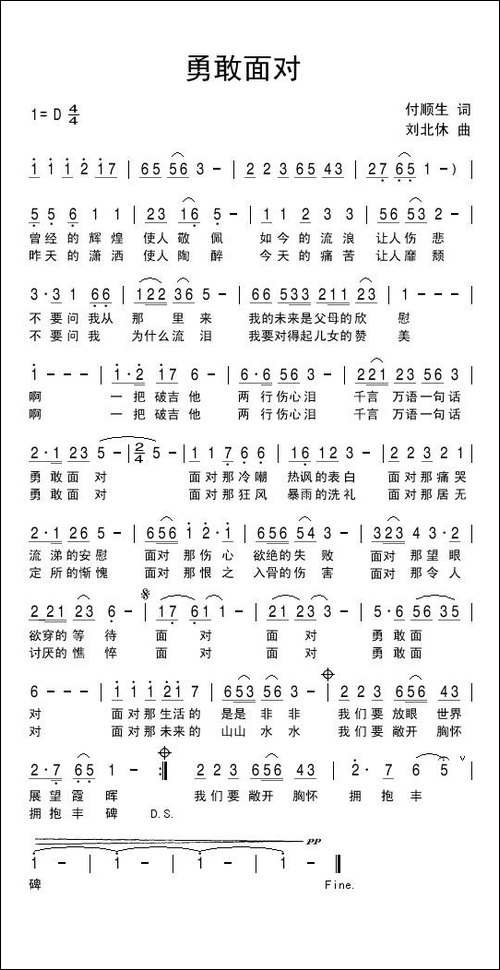 勇敢面对
1=D 4/4
付顺生 词
刘北休 曲
1 1 1 2 1 7 | 6 5 5 6 3 - | 2 2 3 6 5 4 3 | 2 7 6 5 1 - ) |
5 5 6 1 1 | 2 3 1 6 5 - | 1 1 2 3 3 | 5 6 5 3 2 - |
曾经的辉煌 使人敬佩 如今的流浪 让人伤悲
昨天的潇洒 使人陶醉 今天的痛苦 让人靡颓
3 · 3 1 0 6 6 | 1 2 2 3 6 5 - | 6 6 5 3 3 2 1 1 2 3 | 1 - - - |
不要问我从那里来 我的未来是父母的欣慰
不要问我 为什么流泪 我要对得起儿女的赞美
1 - - - | 1 · 2 1 7 6 | 6 · 6 5 6 3 | 2 2 1 2 3 5 6 3 |
啊 一把破吉他 两行伤心泪 千言万语一句话
啊 一把破吉他 两行伤心泪 千言万语一句话
2 · 1 2 3 5 - | 2/4 5 - | 1 1 7 6 6 | 1 6 1 2 3 3 | 2 2 3 7 6 |
勇敢面对 面对那冷嘲 热讽的表白 面对那痛哭
勇敢面对 面对那狂风 暴雨的洗礼 面对那居无
2 · 1 2 3 5 | 6 5 6 1 2 · 1 | 6 5 6 5 4 3 - | 3 2 3 4 3 · 2 |
流涕的安慰 面对那伤心 欲绝的失败 面对那望眼
定所的惭愧 面对那恨之 入骨的伤害 面对那令人
2 2 1 2 3 6 - | 1 7 6 1 1 - | 2 1 2 3 3 - | 5 · 6 5 6 3 5 |
欲穿的等待 面对 面对 勇敢面
讨厌的憔悴 面对 面对 勇敢面
6 - - - | 1 1 1 2 1 7 | 6 5 3 5 6 3 - | 2 2 3 6 5 6 4 3 |
对 面对那生活的 是是非非 我们要放眼世界
对 面对那未来的 山山水水 我们要敞开胸怀
2 · 7 6 5 1 - :| 2 2 3 6 5 6 4 3 | 2 · 7 6 5 |
展望霞晖 我们要敞开胸怀 拥抱丰
拥抱丰碑 D.S.
pp
1 - | 1 - | 1 - | 1 - |
碑 Fine.